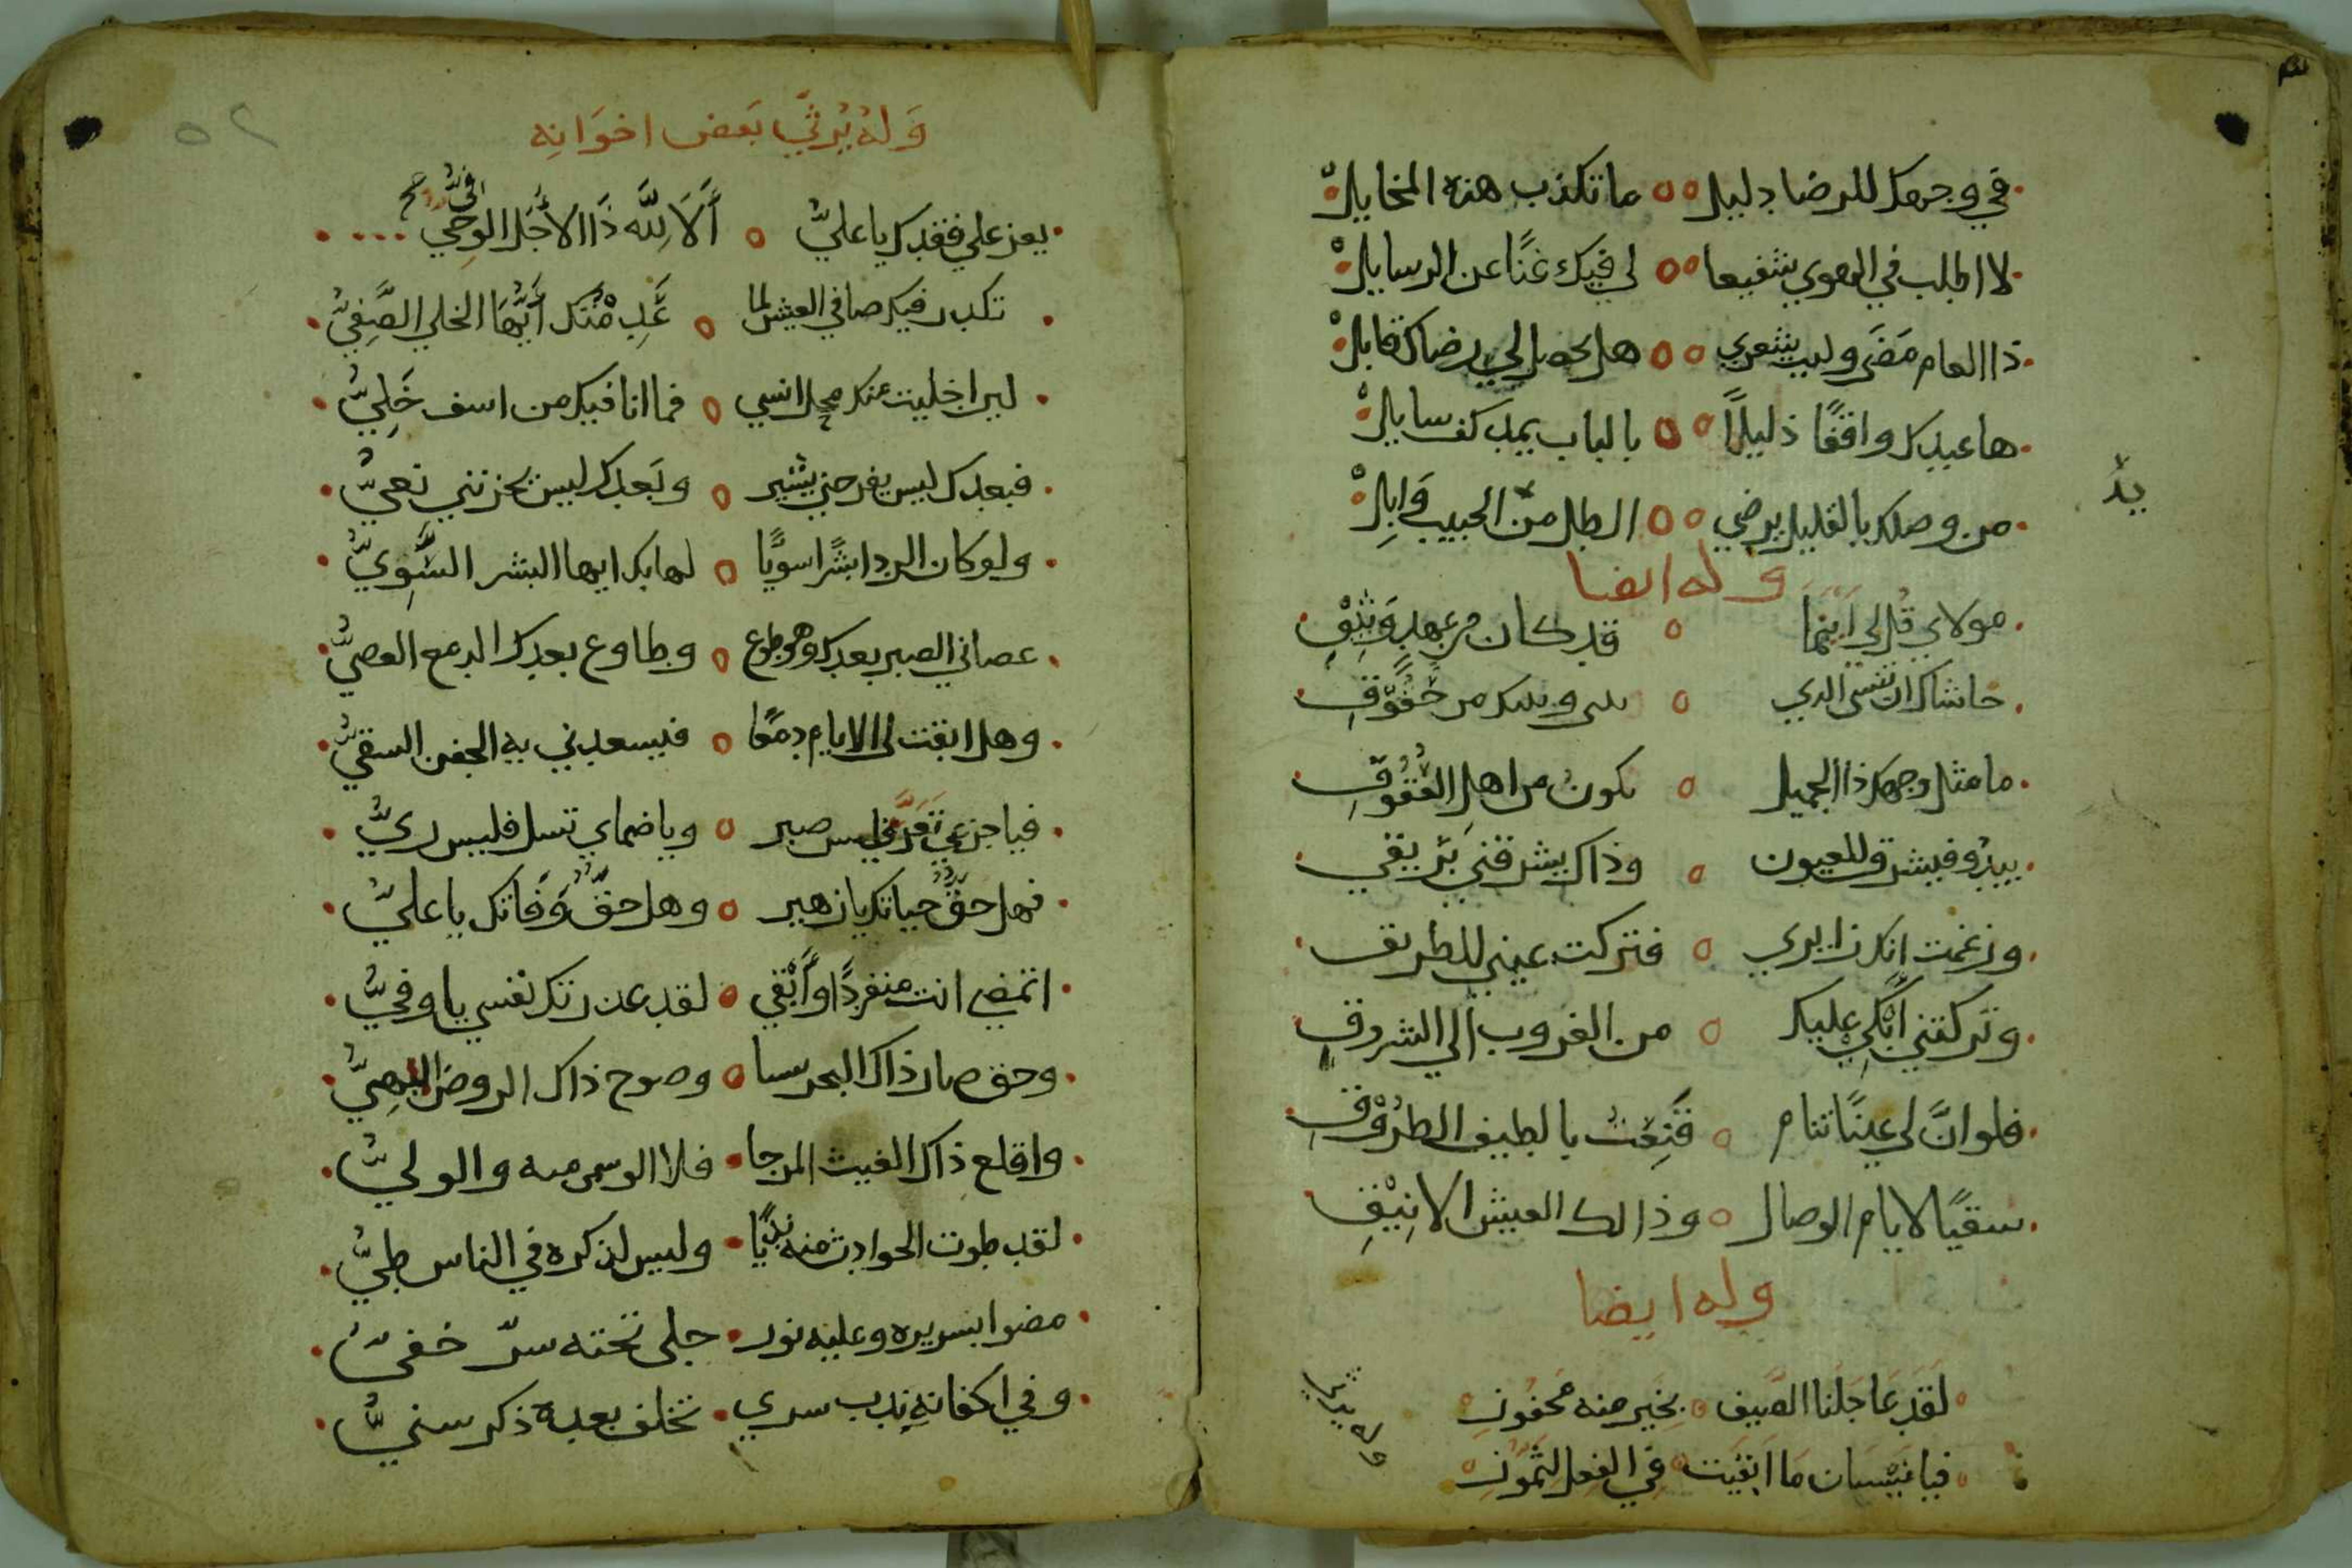 في وجهك للرضا دليل ٥٥ ما تكذب هذه المخايل
لا اطلب في الهوي شفيعا ٥٥ لي فيك غنًا عن الرسايل
ذا العام مَضَى وليت شعري ٥٥ هل يحصل لي رضاك قابل
ها عبدك واقفًا ذليلًا ٥٥ بالباب يمد كف سايل
من وصلك بالقليل يرضي ٥٥ الطل من الحبيب وَابِل
وله ايضا
مولاي قُل لي اَيْنَمَا ٥ قد كان من عهدٍ وَثِيْقِ
حاشاك ان تنسى الدي ٥ بيني وبينك من حُقُوقِ
ما مثل وجهك ذا الجميل ٥ يكونُ من اهلِ العُقُوقِ
يبدُو فيشرق للعيون ٥ وذاك يشرقني بَرِيقي
وزعمت انك زايري ٥ فتركت عيني للطريق
وتركتني اَبْكي عليك ٥ من الغروب الي الشروق
فلو انَّ لي عينًا تنام ٥ قَنِعْتُ بالطيف الطرُوْقِ
سقيًا لايام الوصال ٥ وذالك العيش الانِيْقِ
وله ايضا
لقد عَاجَلَنَا الصَّيف ٥ بِحَير منه مَحفُوفِ
فيا نيسَان مَا اَبقَيت ٥ في الفِعلِ لتَمُّوزِ
وله يرثي
وَلهُ يُرثيِّ بَعض اخوَانِه
يعز علي فقدك يا عليُّ ٥ أَلَا لِلَّه ذَا الأَجَل الوحِيُّ
تكدر فيك صافي العيش لما ٥ عَدِمْتُكَ أَيُّهَا الخلي الصَّفِيُّ
لين اخليت منك محل انسي ٥ فما انا فيك من اسف خَلِيُّ
فبعدك ليس يفرحني بشير ٥ وبَعدك ليس يحزنني نعيُّ
ولو كان الردا بشرًا سويًّا ٥ لهابك ايها البشر السَّوِيُّ
عصاني الصبر بعدك وهو طوع ٥ وطاوع بعدك الدمع العصيُّ
وهل ابقت لي الايام دمعًا ٥ فيسعدني به الجفن السقيُّ
فيا جزعي تَعَزَّ فليس صبر ٥ ويا ضماي تسل فليس ريُّ
فهل حقٌّ حياتك يا زهير ٥ وهل حقٌّ وَفَاتك يا عليُّ
اتمضي انت منفردًا وأَبْقي ٥ لقد غدرتك نفسي يا وفيُّ
وحق صار ذاك البحر يبسا ٥ وصوح ذاك الروض البهِيُّ
واقلع ذاك الغيث المرجا ٥ فلا الوسمي منه والوليُّ
لقد طوت الحوادث منه نديًّا ٥ وليس لذكره في الناس طيُّ
مضوا بسريره وعليه نور ٥ جلى تحته سرّ خفىّ
وفي اكفانهِ ندب سري ٥ تخلف بعده ذكر سنيُّ